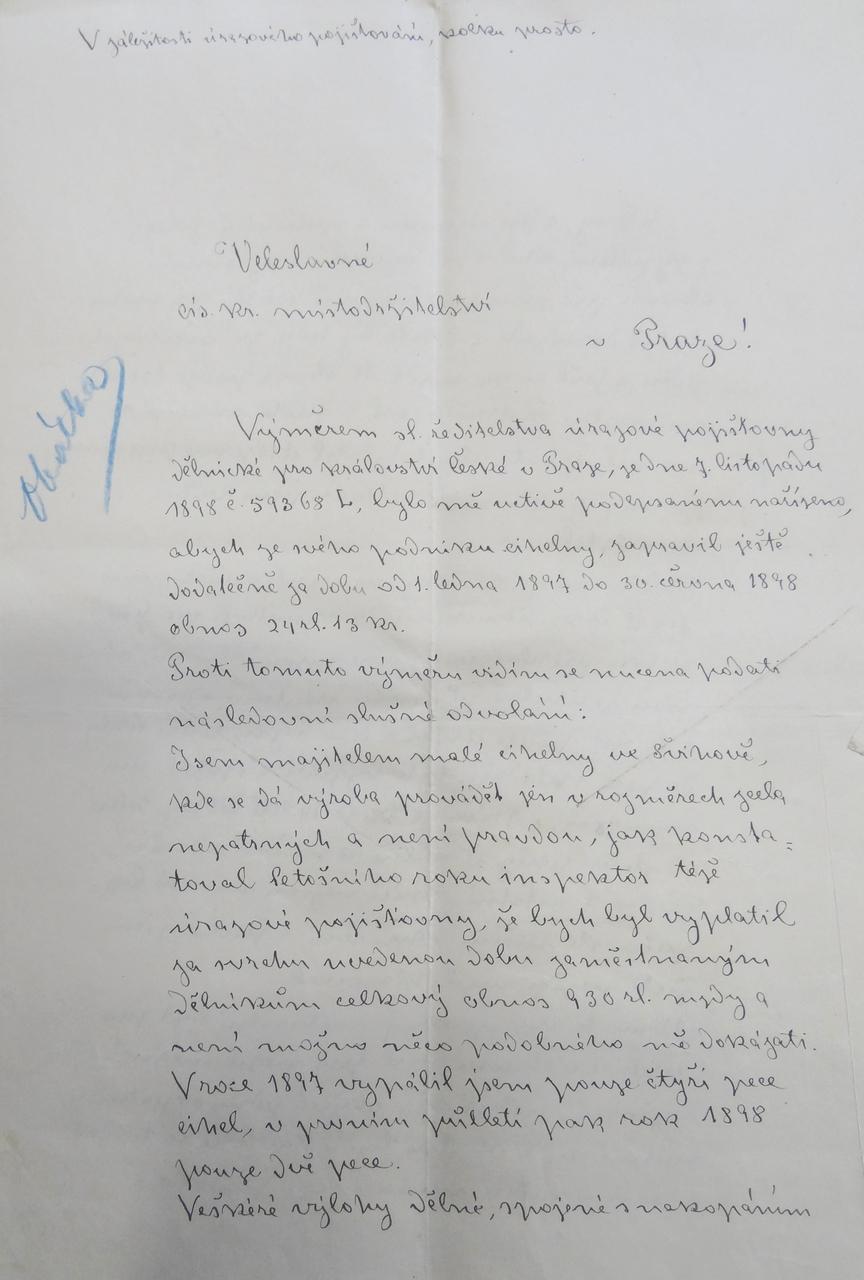 V záležitosti úrazového pojišťování, kolku prosto.
Veleslavné
cís. kr. místodržitelství
v Praze!
Obálka
Výměrem sl. ředitelstva úrazové pojišťovny
dělnické pro království české v Praze, ze dne 7. listopadu
1898 č. 59368 L, bylo mě uctivě podepsanému nařízeno,
abych ze svého podniku cihelny, zapravil ještě
dodatečně za dobu od 1. ledna 1897 do 30. června 1898
obnos 24 zl. 13 kr.
Proti tomuto výměru vidím se nucena podati
následovní slušné odvolání:
Jsem majitelem malé cihelny ve Švihově,
kde se dá výroba provádět jen v rozměrech zcela
nepatrných a není pravdou, jak konsta=
toval letošního roku inspektor téže
úrazové pojišťovny, že bych byl vyplatil
za svrchu uvedenou dobu zaměstnaným
dělníkům celkový obnos 930 zl. mzdy a
není možno něco podobného mě dokázati.
V roce 1897 vypálil jsem pouze čtyři pece
cihel, v prvním půlletí pak rok 1898
pouze dvě pece.
Veškéré výlohy dělné, spojené s nakopáním